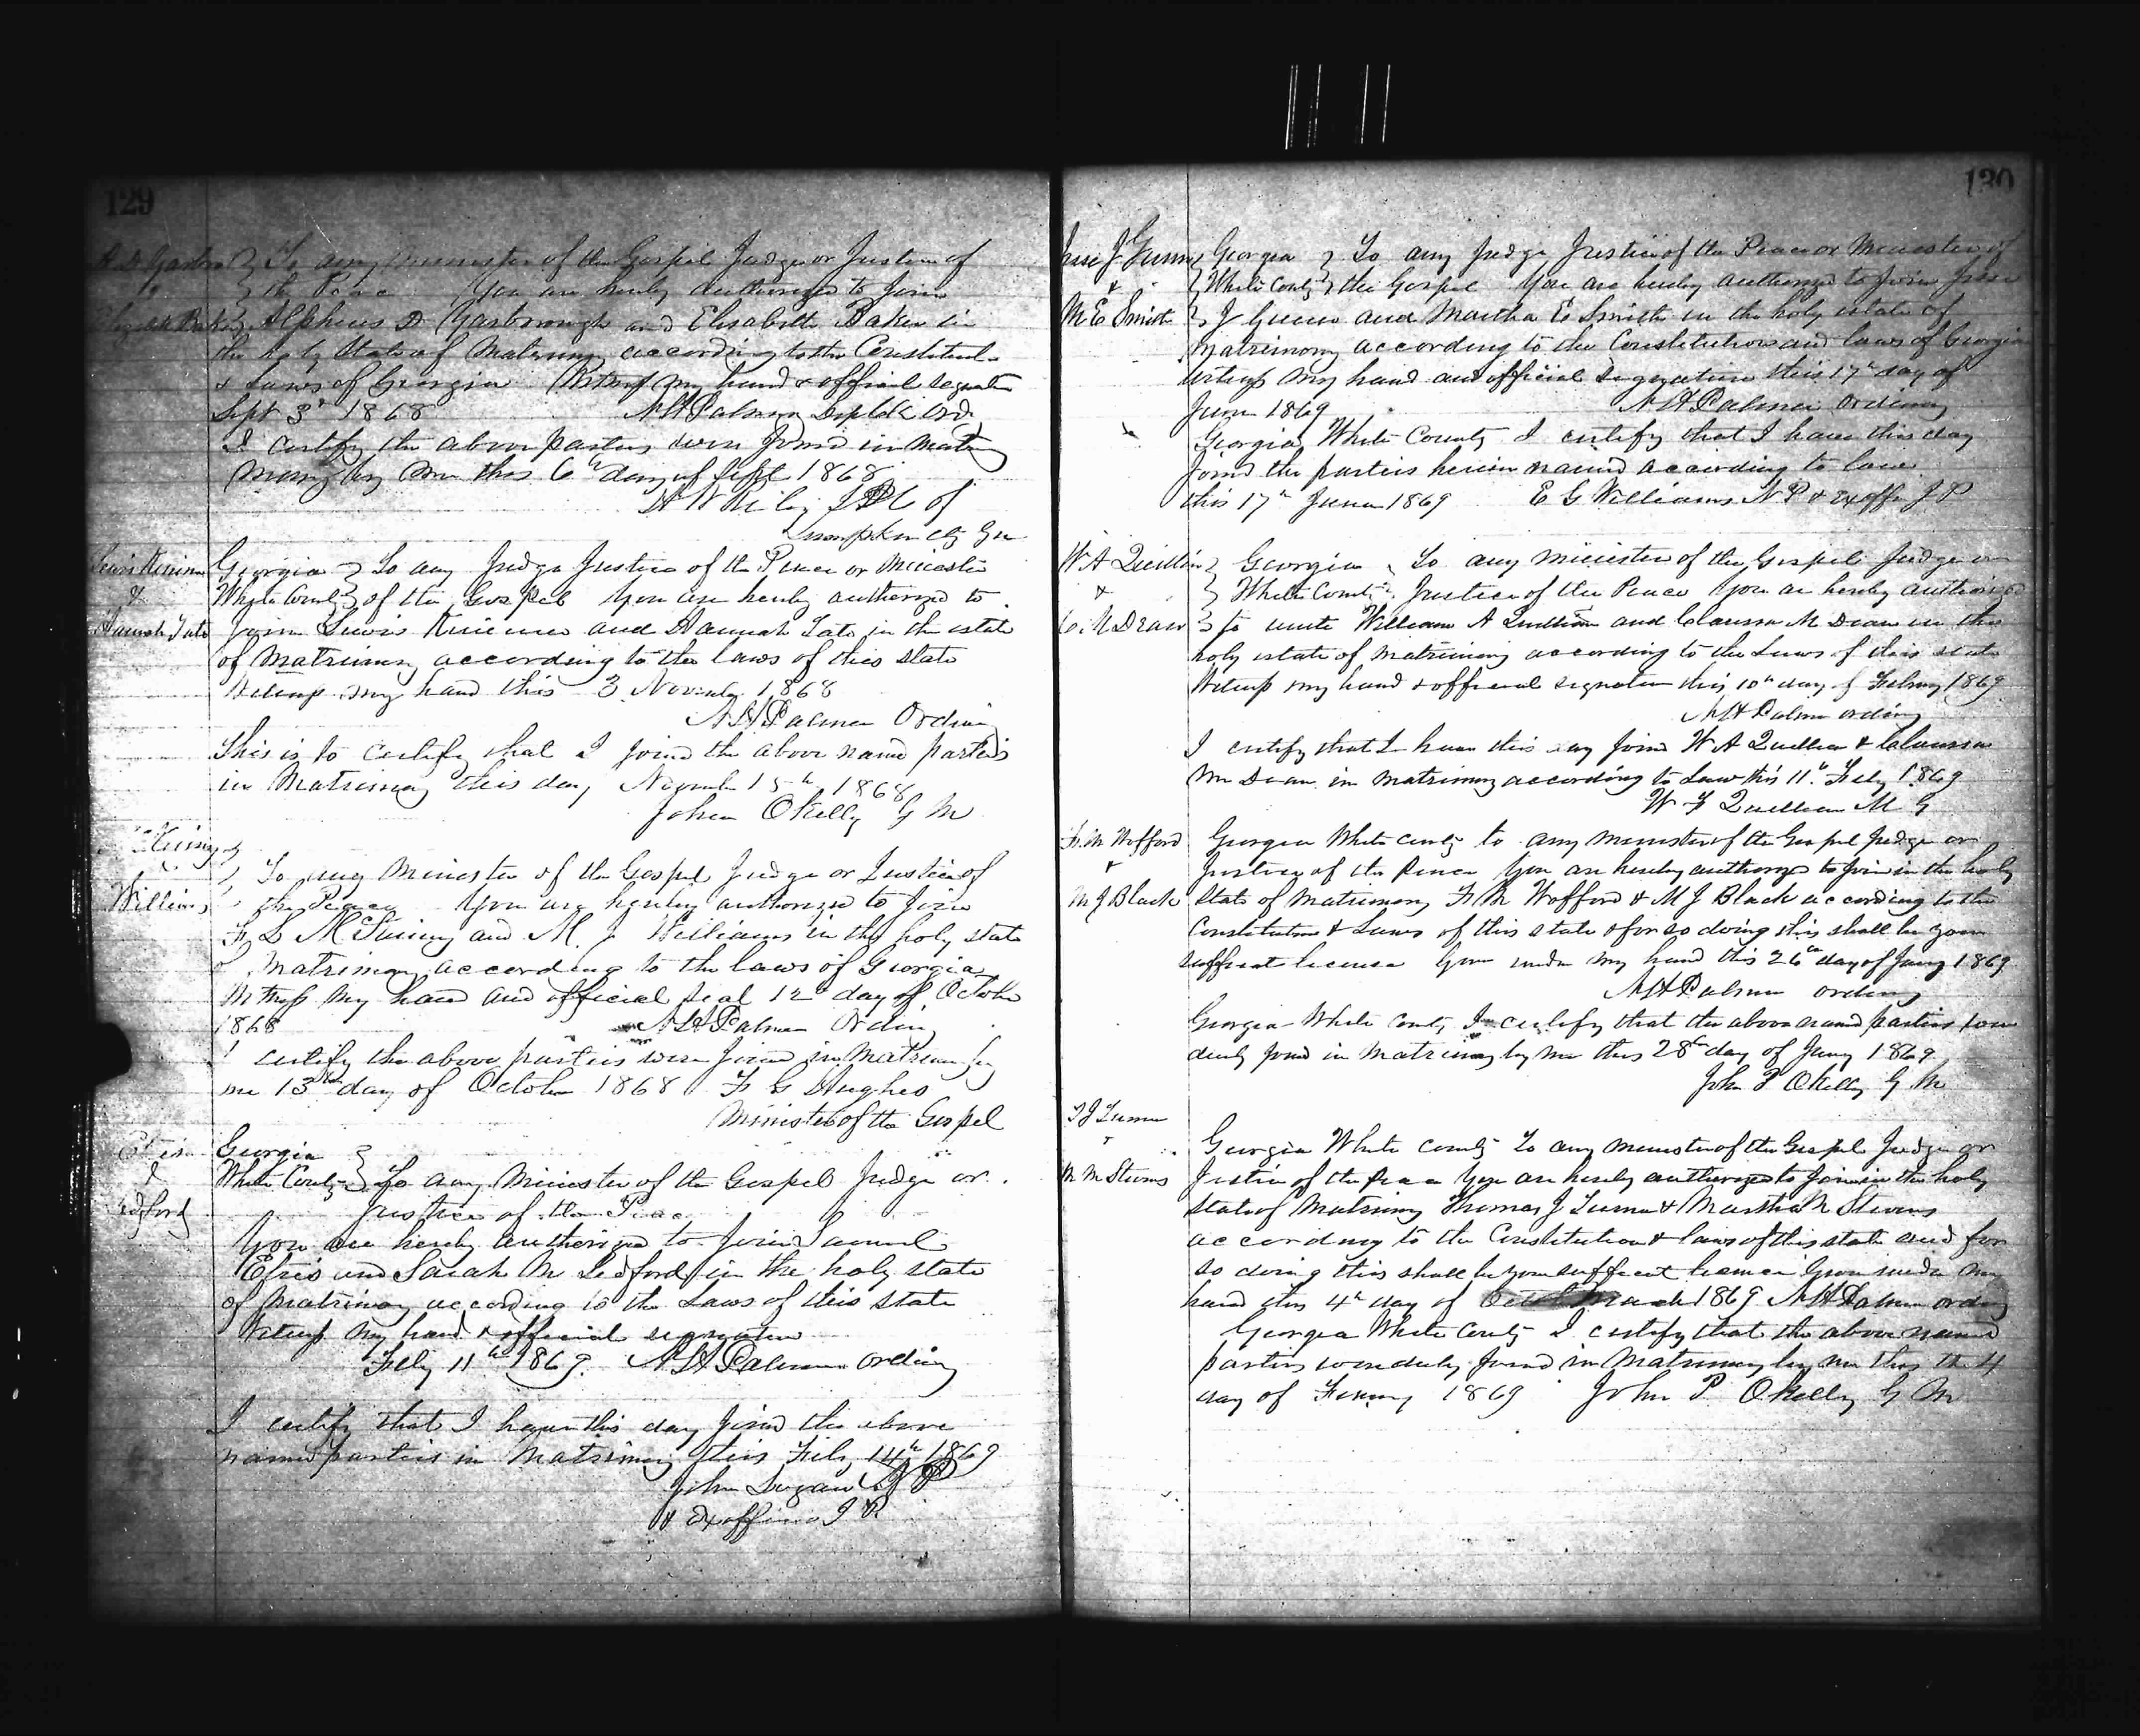 129
To any minister of the Gospel Judge or Justice of
the Peace You are hereby authorized to Join
Alpheus D Yarbrough and Elisabeth Baker in
the holy State of Matrimony according to the Constitut
& Laws of Georgia Witness my hand & official Signature
Sept 3d 1868 A H Palmer Ord
I certify the above parties were Joined in Matri
mony by me this 6th day of Sept 1868
Lumpkin Co Ga
Georgia To any Judge Justice of the Peace or Minister
White County of the Gospel You are hereby authorized to
&
Hannah Tate Join Lewis and Hannah Tate in the estate
of Matrimony according to the laws of this State
Witness my hand this 3 Novemb 1868
A H Palmer Ordinary
This is to certify that I joined the above named parties
in Matrimony this day Novemb 15th 1868
John OKelly G M
To any Minister of the Gospel Judge or Justice of
Williams the Peace You are hereby authorized to Join
and M J Williams in the holy state
of Matrimony according to the laws of Georgia
Witness my hand and official seal 12th day of October
1868 A H Palmer Ordinary
I certify the above parties were Joined in Matrimony by
me 13th day of October 1868 F G Hughes
Minister of the Gospel
Georgia
&
White County To any Minister of the Gospel Judge or
Justice of the Peace
You are hereby authorized to Join Samuel
Etris and Sarah M Ledford in the holy state
of Matrimony according to the Laws of this state
Witness my hand & official signature
Feby 11th 1869. A H Palmer Ordinary
I certify that I have this day Joined the above
named parties in Matrimony this Feby 14th 1869
John N P
& Exofficio J P
130
Georgia To any Judge Justice of the Peace or Minister of
&
White County the Gospel You are hereby authorized to Join Jesse
M E Smith J Gunn and Martha E Smith in the holy estate of
Matrimony according to the Constitution and laws of Georgia
Witness my hand and official Signature this 17th day of
June 1869 A H Palmer Ordinary
Georgia White County I certify that I have this day
Joined the parties herein named according to law
this 17th June 1869 E G Williams N P & Exoffi J P
W A Quillian Georgia To any minister of the Gospel Judge or
&
White County Justice of the Peace You are hereby authorized
C M Dean to unite William A Quillian and Clarissa M Dean in the
holy estate of Matrimony according to the Laws of this state
Witness my hand & official signature this 10th day of Febuary 1869
A H Palmer Ordinary
I certify that I have this day Joined W A Quillian & Clarissa
M Dean in Matrimony according to Law this 11th Feby 1869
W F Quillian M G
F. M Wofford Georgia White County to any minister of the Gospel Judge or
&
Justice of the Peace You are hereby authorized to Join in the holy
M J Black State of Matrimony F M Wofford & M J Black according to the
Constitution & Laws of this state & for so doing this shall be your
sufficient license Given under my hand this 26th day of Jany 1869
A H Palmer Ordinary
Georgia White County I certify that the above named parties were
duly Joined in Matrimony by me this 28th day of Jany 1869
John P OKelly G M
T J Turner
Georgia White County To any minister of the Gospel Judge or
M M Stevens Justice of the Peace You are hereby authorized to Join in the holy
State of Matrimony Thomas J Turner & Martha M Stevens
according to the Constitution & laws of this state and for
so doing this shall be your sufficient license Given under my
hand this 4th day of March 1869 A H Palmer Ordinary
Georgia White County I certify that the above named
parties were duly Joined in Matrimony by me this the 4
day of 1869 John P. OKelly G M